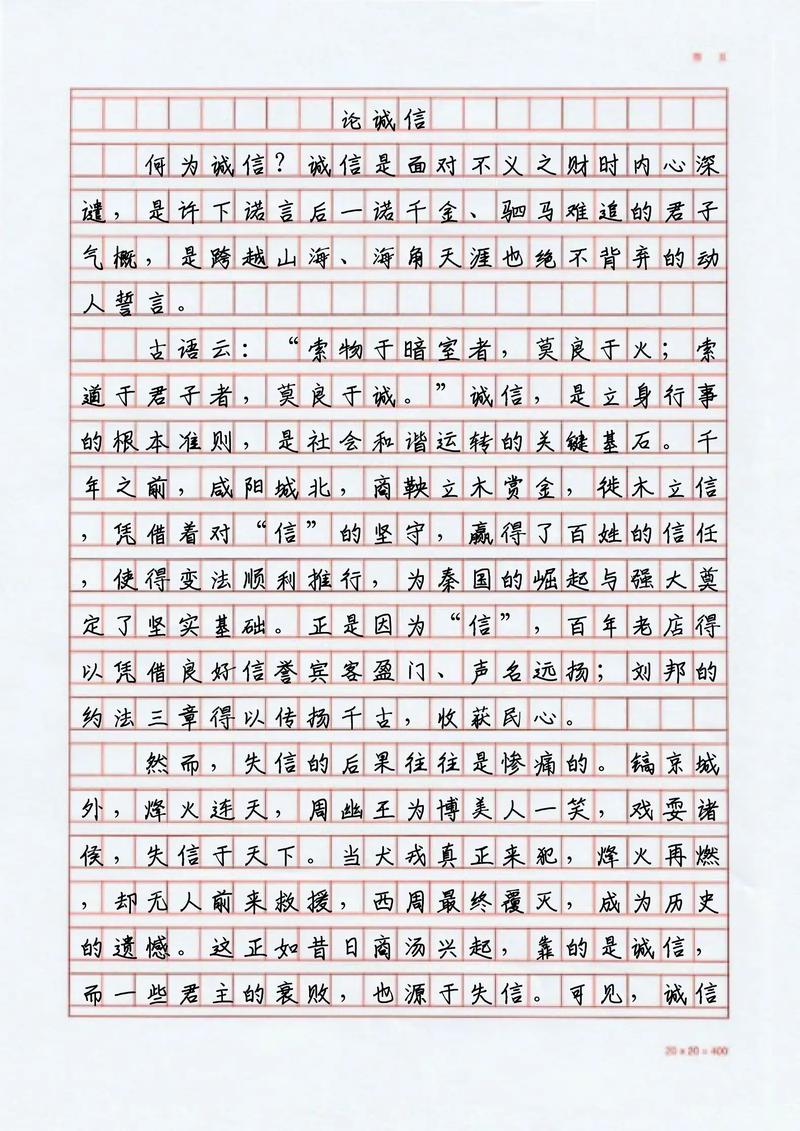 论诚信
何为诚信？诚信是面对不义之财时内心深
谴，是许下诺言后一诺千金、驷马难追的君子
气概，是跨越山海、海角天涯也绝不背弃的动
人誓言。
古语云：“索物于暗室者，莫良于火；索
道于君子者，莫良于诚。”诚信，是立身行事
的根本准则，是社会和谐运转的关键基石。千
年之前，咸阳城北，商鞅立木赏金，徙木立信
，凭借着对“信”的坚守，赢得了百姓的信任
，使得变法顺利推行，为秦国的崛起与强大奠
定了坚实基础。正是因为“信”，百年老店得
以凭借良好信誉宾客盈门、声名远扬；刘邦的
约法三章得以传扬千古，收获民心。
然而，失信的后果往往是惨痛的。镐京城
外，烽火连天，周幽王为博美人一笑，戏耍诸
侯，失信于天下。当犬戎真正来犯，烽火再燃
，却无人前来救援，西周最终覆灭，成为历史
的遗憾。这正如昔日商汤兴起，靠的是诚信，
而一些君主的衰败，也源于失信。可见，诚信
20×20=400